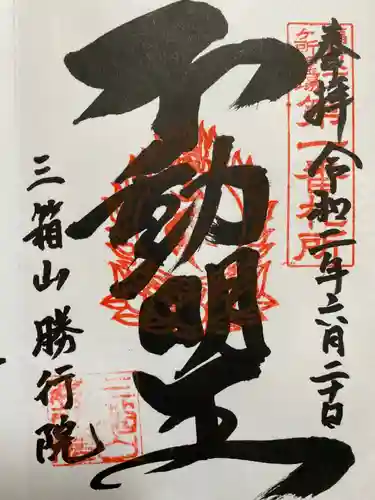 奉拝 令和二年六月二十日
不動明王
三箱山 勝行院